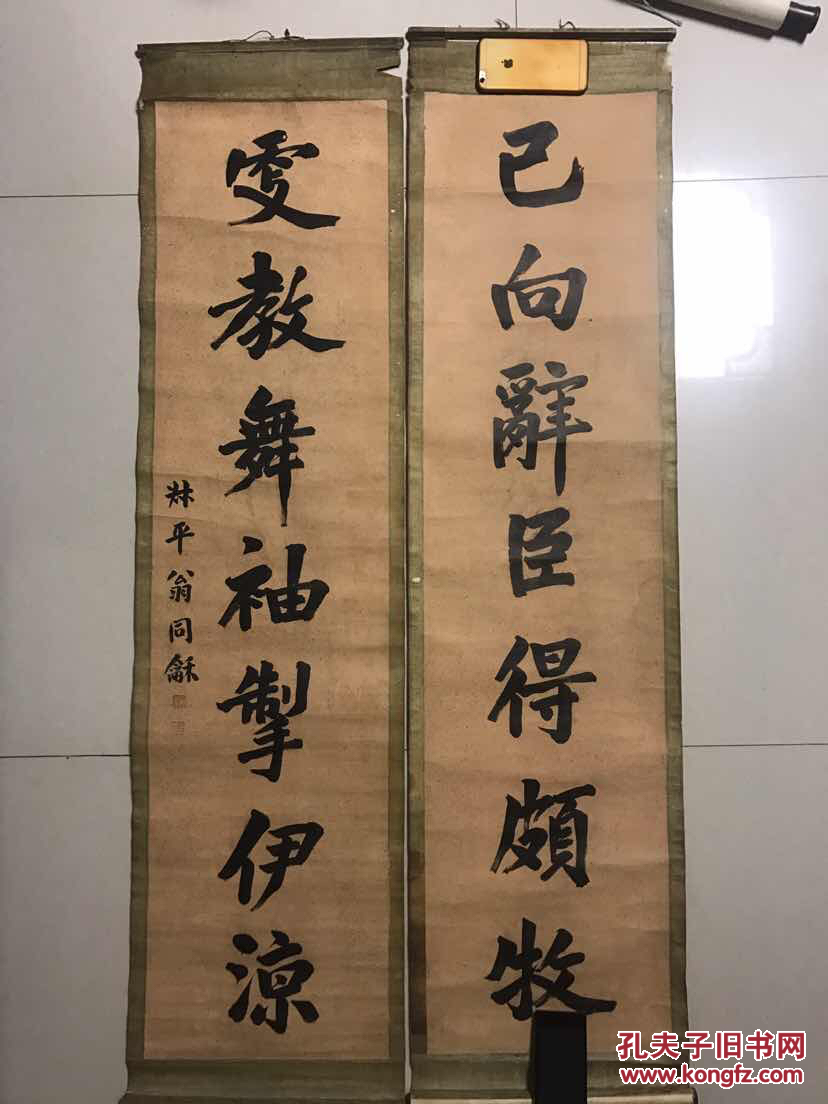 已向辭臣得頗牧
雯教舞袖掣伊涼
叔平翁同龢
孔夫子旧书网
www.kongfz.com